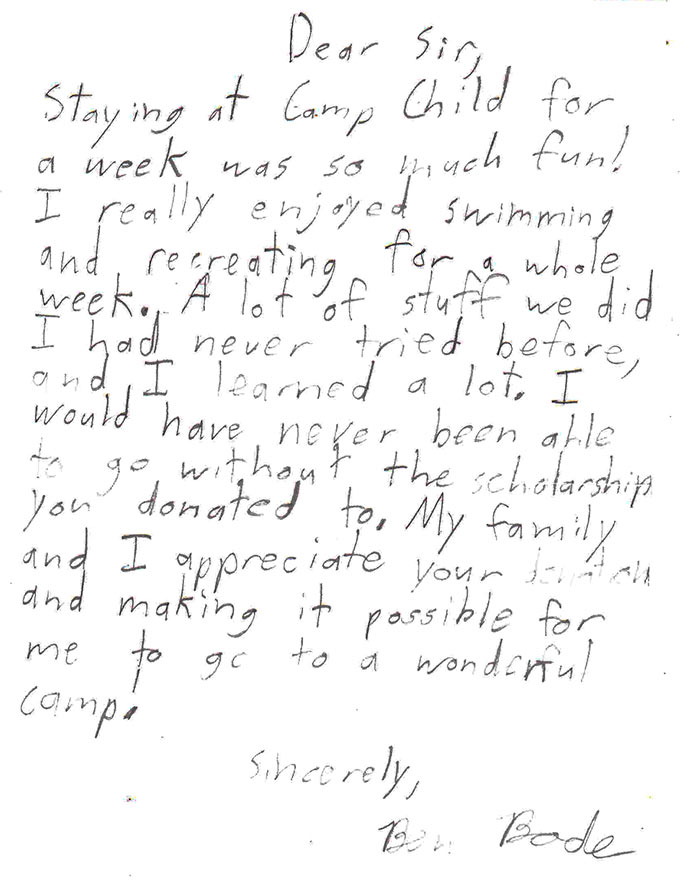 Dear Sir,
Staying at Camp Child for
a week was so much fun!
I really enjoyed swimming
and recreating for a whole
week. A lot of stuff we did
I had never tried before,
and I learned a lot. I
would have never been able
to go without the scholarship
you donated to. My family
and I appreciate your donation
and making it possible for
me to go to a wonderful
camp!
Sincerely,
Ben Bode